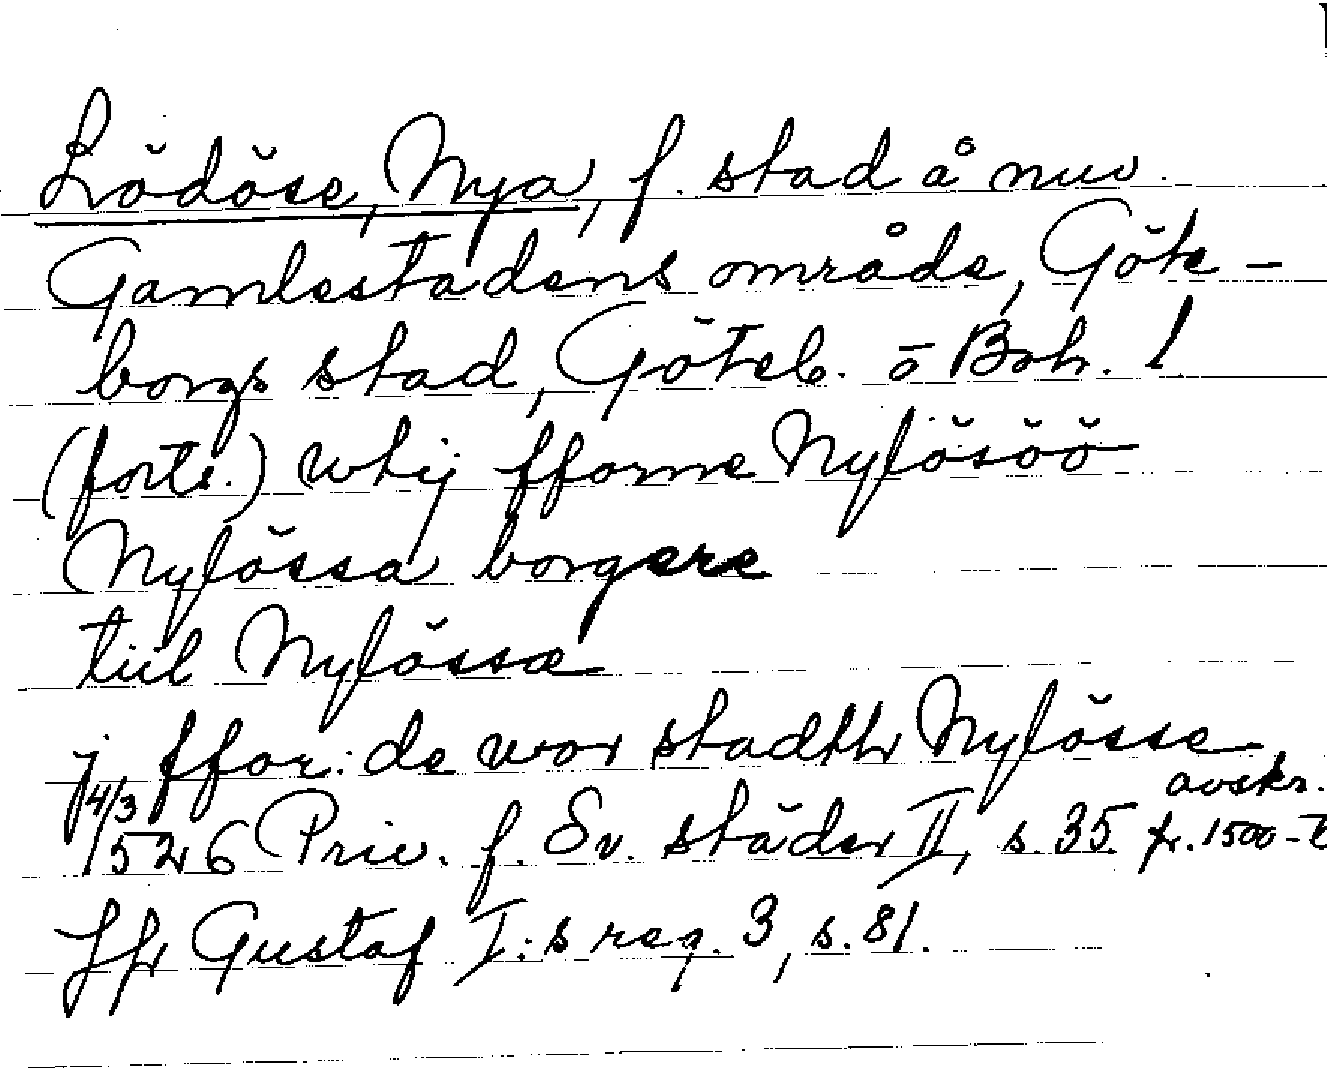 Lödöse, Nya, f. stad å nuv.
Gamlestadens område, Göte-
borgs stad, Göteb. o Boh. l
(forts.) whij fforne Nylösöö
Nylössa borgere
till Nylössæ
j ffor: de wor stadth Nylösse
4/3 1526 Priv. f. Sv. städer II, s. 35. avskr. fr. 1500-t
Jfr Gustaf I:s reg. 3, s. 81.